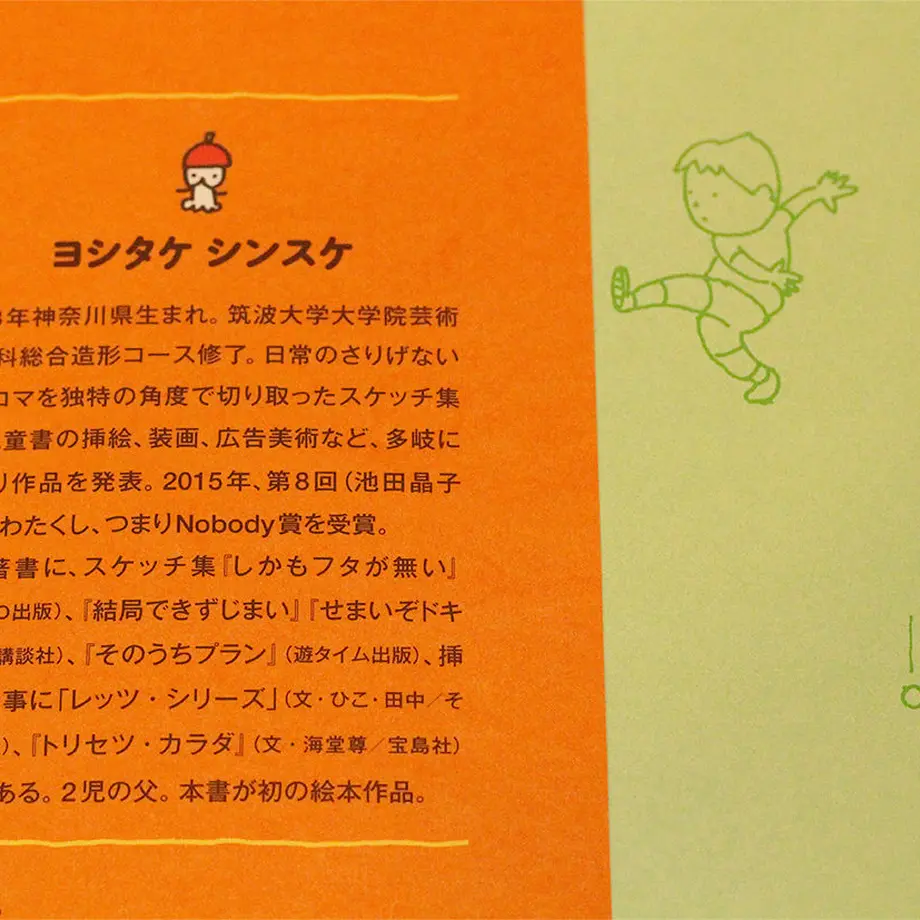 ヨシタケ シンスケ
年神奈川県生まれ。筑波大学大学院芸術
科総合造形コース修了。日常のさりげない
コマを独特の角度で切り取ったスケッチ集
童書の挿絵、装画、広告美術など、多岐に
り作品を発表。2015年、第8回(池田晶子
わたくし、つまりNobody賞を受賞。
著書に、スケッチ集『しかもフタが無い』
出版)、『結局できずじまい』『せまいぞドキ
講談社)、『そのうちプラン』(遊タイム出版)、挿
事に「レッツ・シリーズ」(文・ひこ・田中/そ
)、『トリセツ・カラダ』(文・海堂尊/宝島社)
ある。2児の父。本書が初の絵本作品。